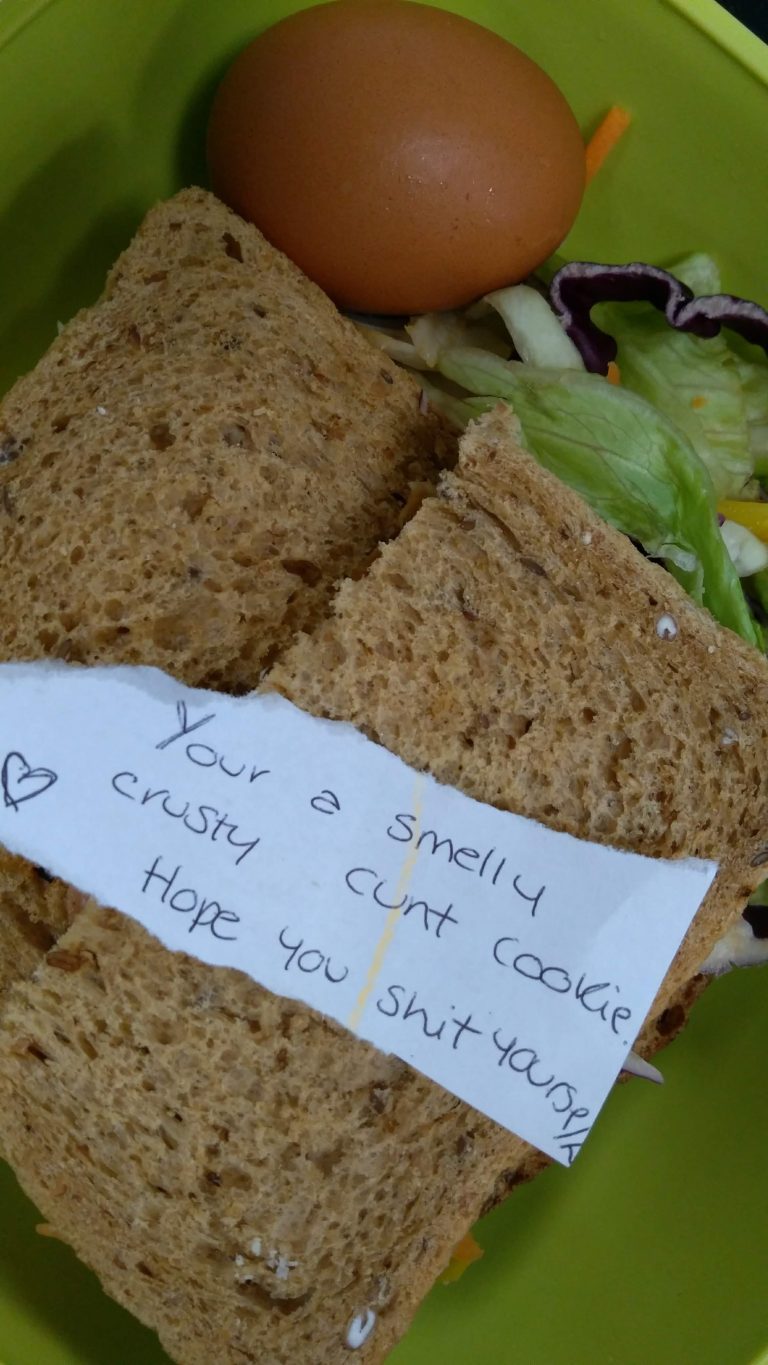 Your a smelly
crusty cunt cookie.
Hope you shit yourself